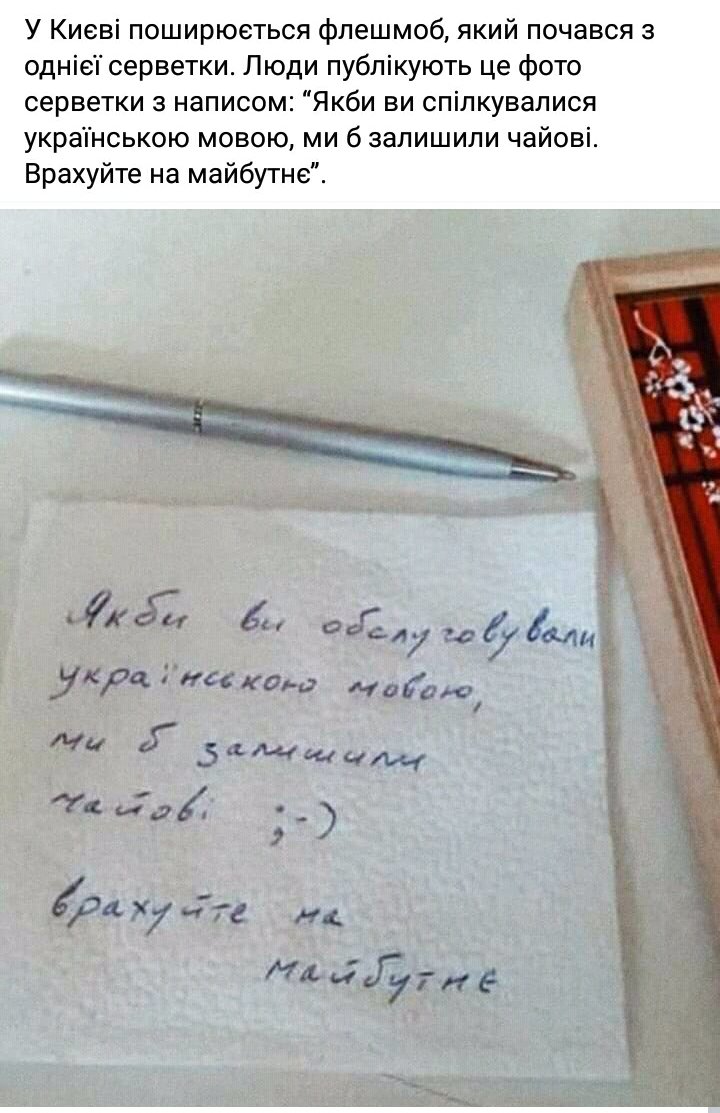 У Києві поширюється флешмоб, який почався з
однієї серветки. Люди публікують це фото
серветки з написом: “Якби ви спілкувалися
українською мовою, ми б залишили чайові.
Врахуйте на майбутнє”.
Якби ви обслуговували
українською мовою,
ми б залишили
чайові ;-)
врахуйте на
майбутнє